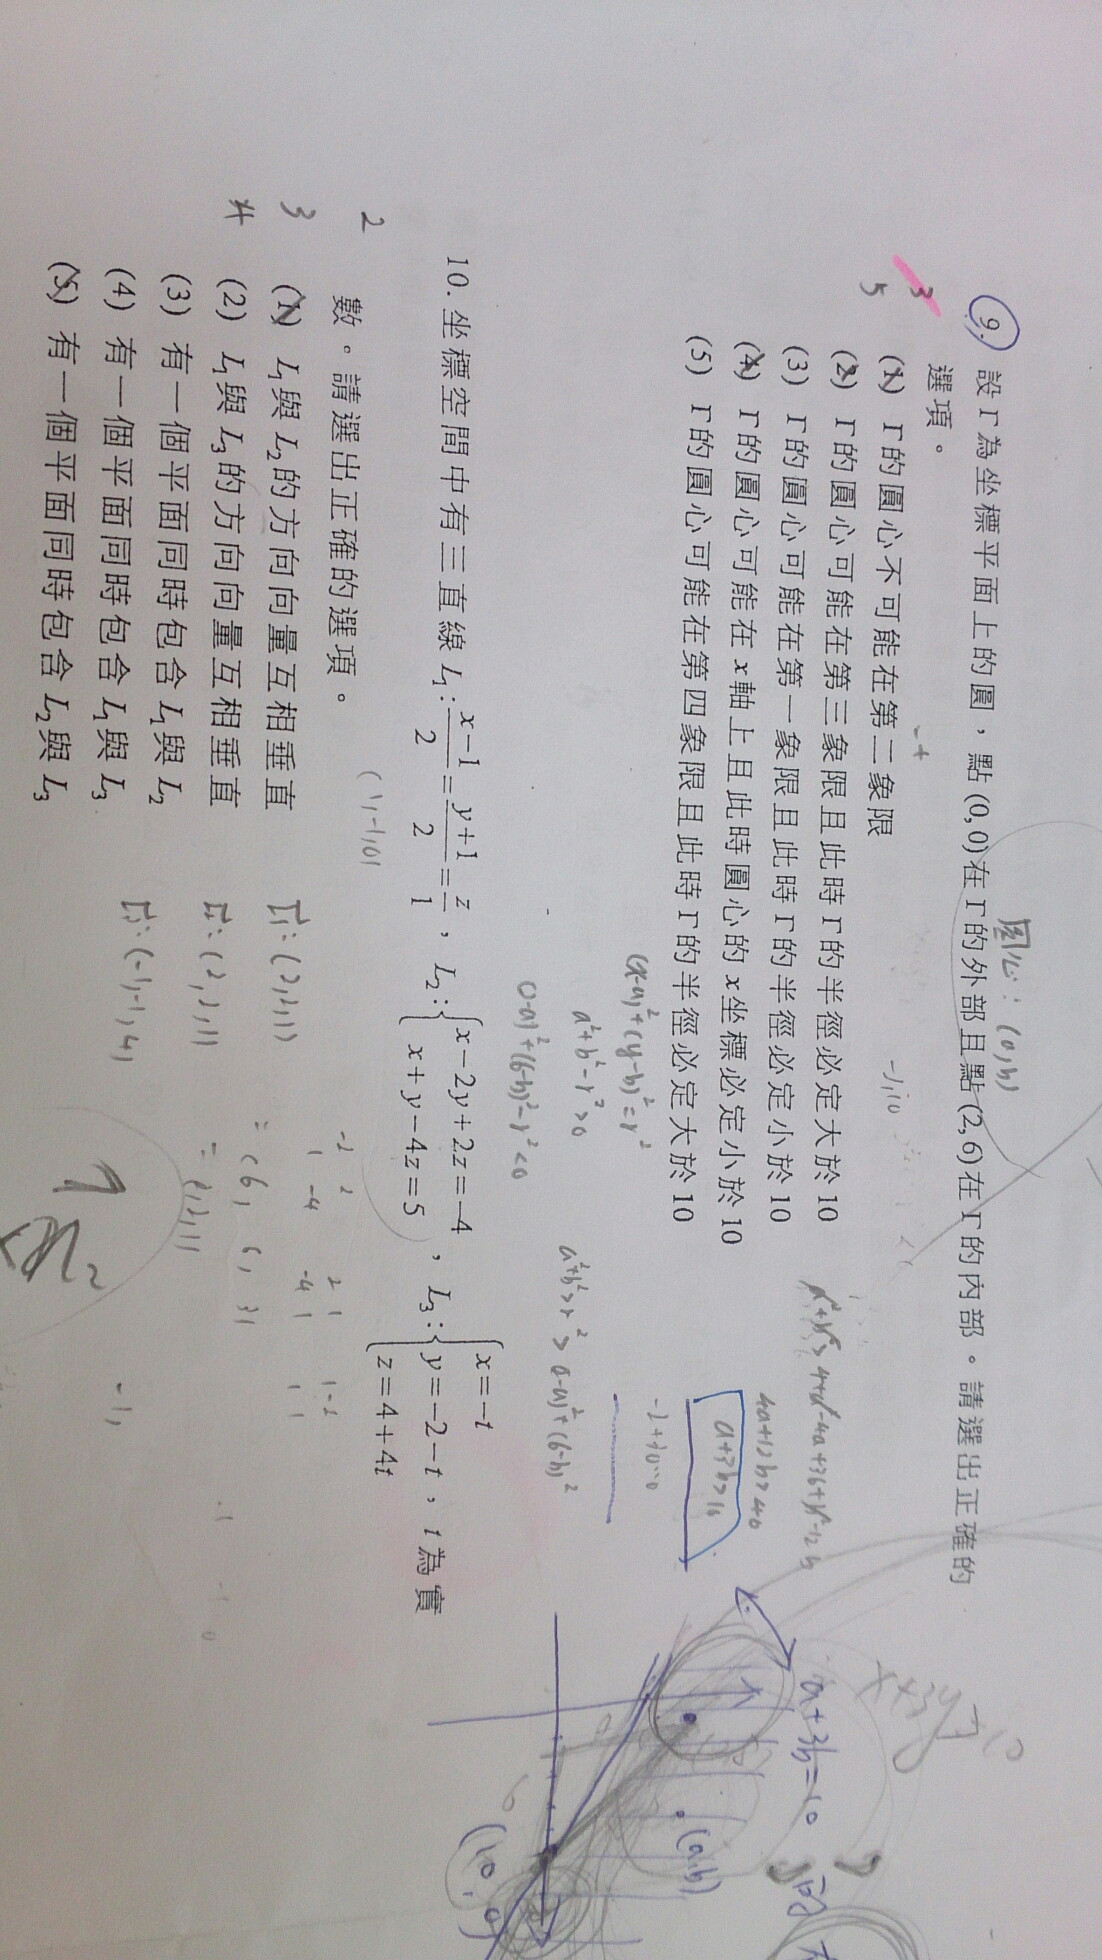 圓心：(a,b)
9. 設Γ為坐標平面上的圓，點(0,0)在Γ的外部且點(2,6)在Γ的內部。請選出正確的
選項。
3
5
(1) Γ的圓心不可能在第二象限
-+
(2) Γ的圓心可能在第三象限且此時Γ的半徑必定大於10
(3) Γ的圓心可能在第一象限且此時Γ的半徑必定小於10
(4) Γ的圓心可能在x軸上且此時圓心的x坐標必定小於10
(5) Γ的圓心可能在第四象限且此時Γ的半徑必定大於10
4a+12b>40
a+3b>10
(x-a)²+(y-b)²=r²
a²+b²-r²>0
a+3b=10
x+3y=10
(a,b)
(10,0)
10. 坐標空間中有三直線 L₁:\frac{x-1}{2}=\frac{y+1}{2}=\frac{z}{1}，L₂:{x-2y+2z=-4, x+y-4z=5，L₃:{x=-t, y=-2-t, z=4+4t，t為實
數。請選出正確的選項。
(1,-1,0)
2
3
4
(1) L₁與L₂的方向向量互相垂直
(2) L₁與L₃的方向向量互相垂直
(3) 有一個平面同時包含L₁與L₂
(4) 有一個平面同時包含L₁與L₃
(5) 有一個平面同時包含L₂與L₃
L₁:(2,2,1)
L₂:(2,2,1)
L₃:(-1,-1,4)
=(6, 6, 3)
=(2,2,1)